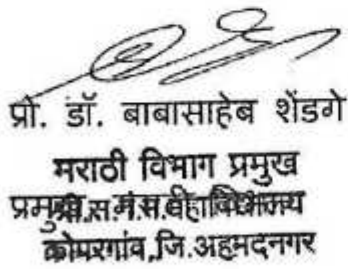 प्रो. डॉ. बाबासाहेब शेंडगे
मराठी विभाग प्रमुख
कोपरगांव,जि.अहमदनगर